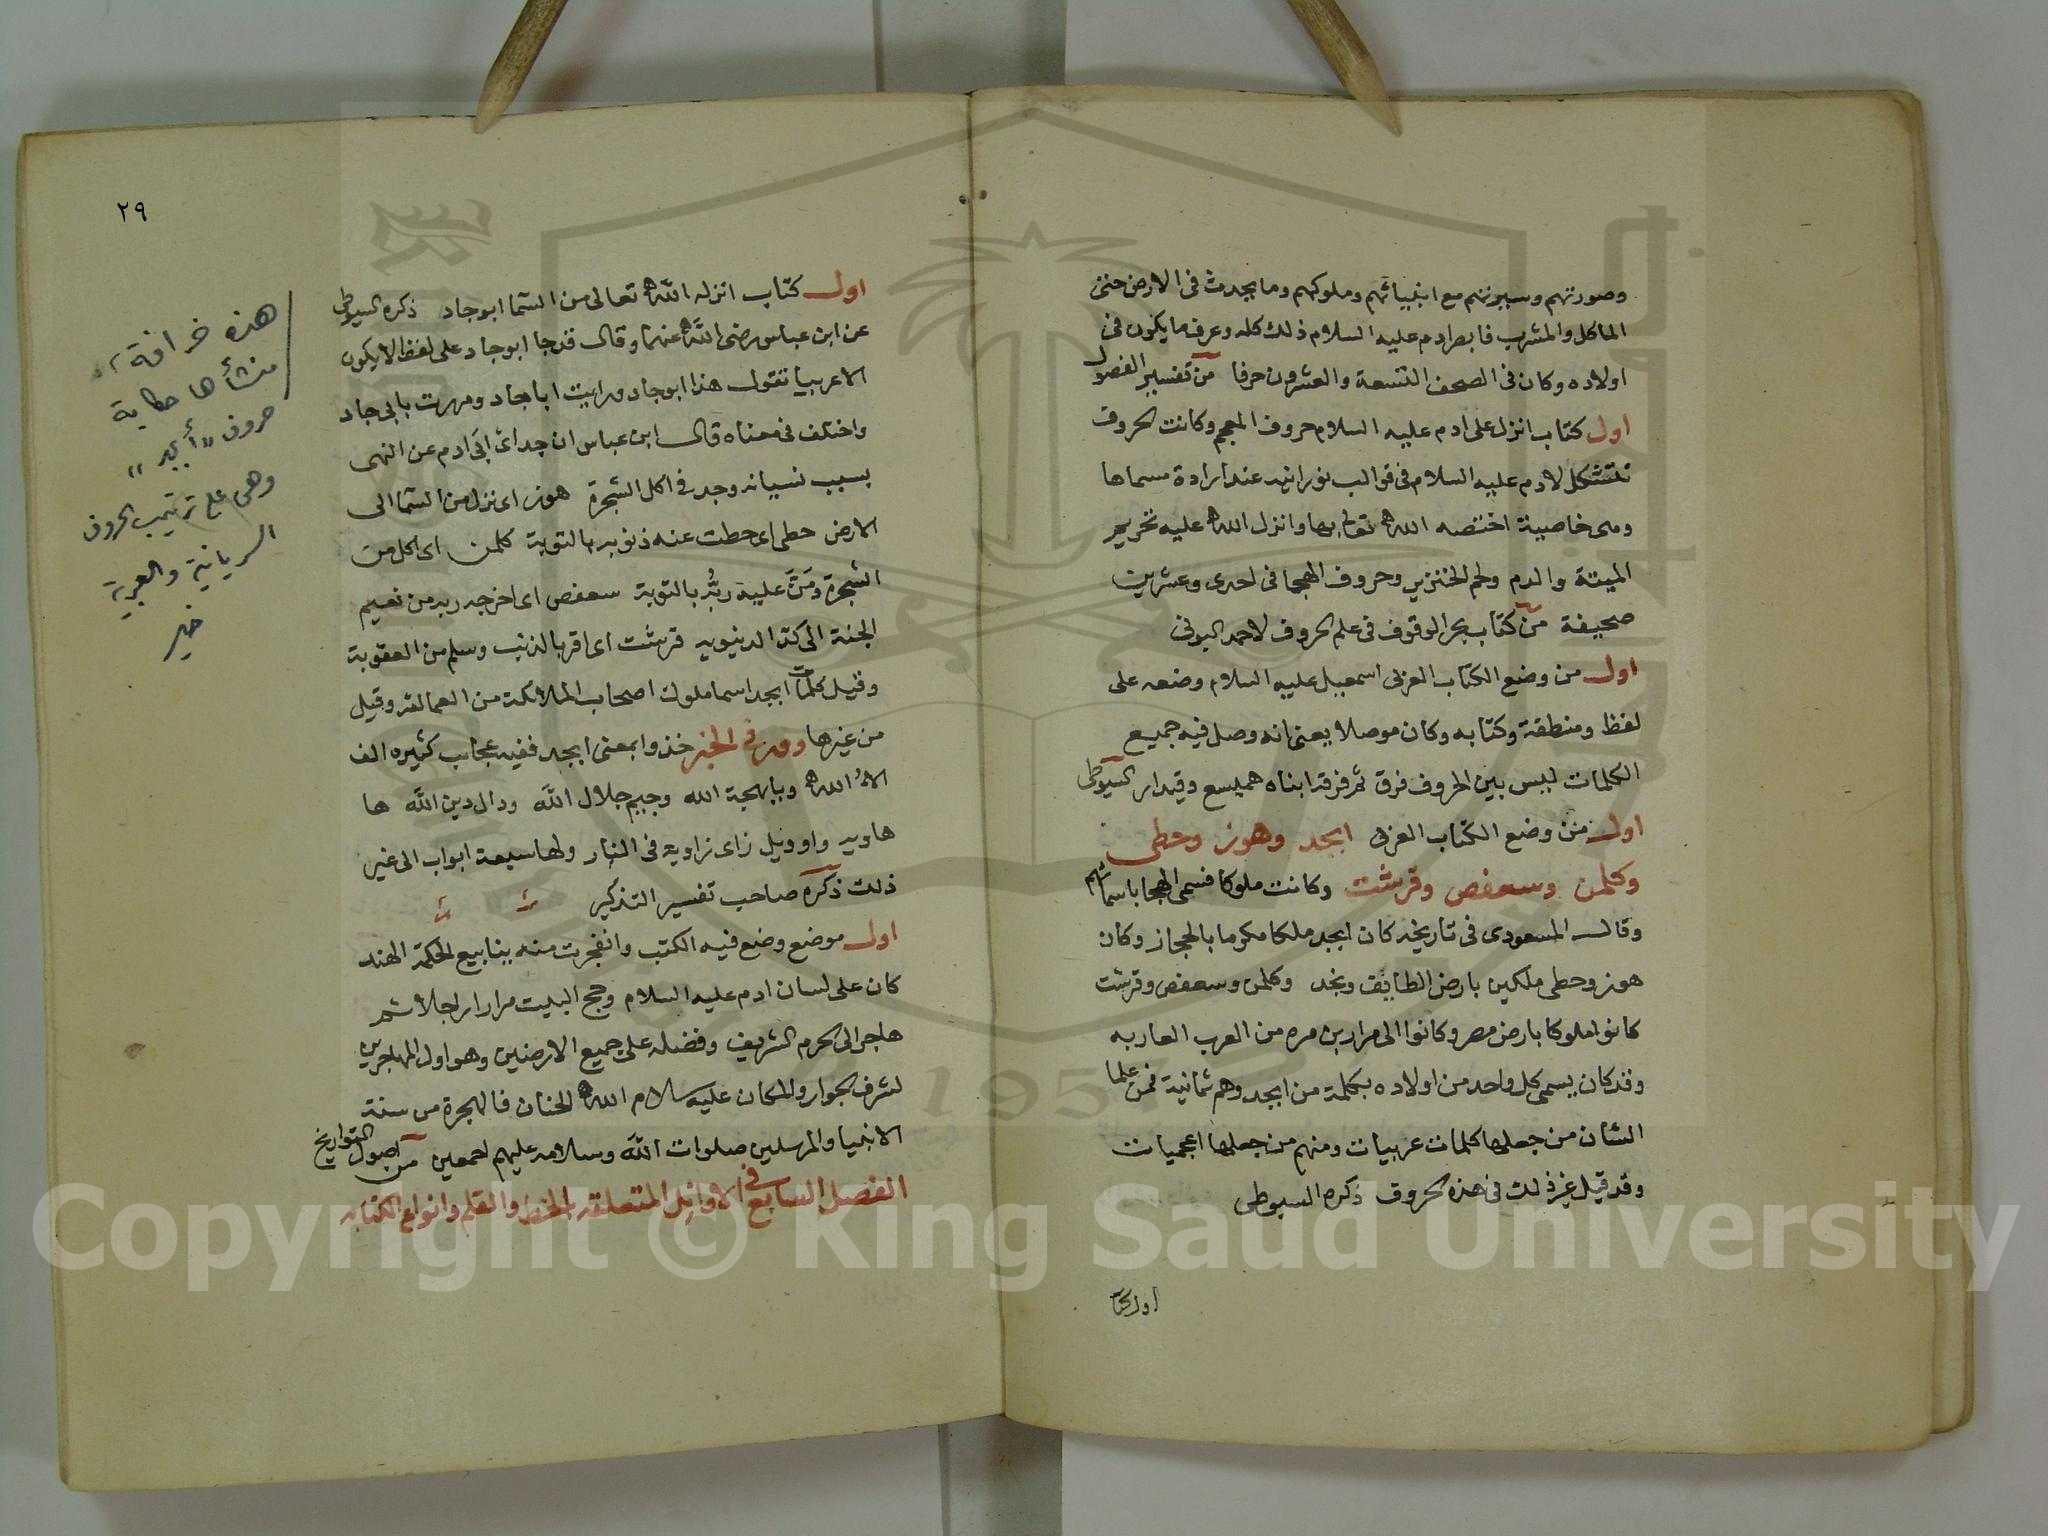 وصورتهم وسيرتهم مع انبيائهم وملوكهم وما يحدث فى الارض حتى
الماكل والمشرب فابصر ادم عليه السلام ذلك كله وعرف ما يكون فى
اولاده وكان فى الصحف التسعة والعشرون حرفا من تفسير الفصول
اول كتاب انزل على ادم عليه السلام حروف المعجم وكانت الحروف
تتشكل لادم عليه السلام فى قوالب نورانيه عند ارادة مسماها
وهى خاصية اختصه الله تعالى بها وانزل الله عليه تحريم
الميتة والدم ولحم الخنزير وحروف الهجا فى احدى وعشرين
صحيفة من كتاب بحر الوقوف فى علم الحروف لاحمد البونى
اول من وضع الكتاب العربى اسمعيل عليه السلام وضعه على
لفظه ومنطقه وكتابه وكان موصلا يعنى انه وصل فيه جميع
الكلمات ليس بين الحروف فرق ثم فرقه ابناه هميسع وقيدار السيوطى
اول من وضع الكتاب العربى ابجد وهوز وحطى
وكلمن وسعفص وقرشت وكانت ملوكا فسمى الهجا باسمائهم
وقال المسعودى فى تاريخه كان ابجد ملكا مكرما بالحجاز وكان
هوز وحطى ملكين بارض الطايف ونجد وكلمن وسعفص وقرشت
كانوا ملوكا بارض مصر وكانوا الى مرار بن مره من العرب العاربه
وقد كان يسمى كل واحد من اولاده بكلمة من ابجد وهم ثمانية فمن علما
الشان من جعلها كلمات عربيات ومنهم من جعلها اعجميات
وقد قيل غير ذلك فى هذه الحروف ذكره السيوطى
اول كتا
٢٩
اول كتاب انزله الله تعالى من السما ابوجاد ذكره السيوطى
عن ابن عباس رضى الله عنهما وقال قد جا ابوجاد على لفظ لا يكون
الا عربيا تقول هذا ابوجاد ورايت اباجاد ومررت بابى جاد
واختلف فى معناه قال ابن عباس ان جد اى ابى ادم عن النهى
بسبب نسيانه وجد فى اكل الشجرة هوز اى نزل من السما الى
الارض حطى اى حطت عنه ذنوبه بالتوبة كلمن اى اكل من
الشجرة ومَنَّ عليه ربُّه بالتوبة سعفص اى اخرجه ربه من نعيم
الجنة الى كد الدنيويه قرشت اى اقر بالذنب وسلم من العقوبة
وقيل كلمات ابجد اسما ملوك اصحاب الملائكة من العمالقة وقيل
من غيرها وورد فى الخبر خذوا بمعنى ابجد ففيه عجائب كثيره الف
الاء الله وبا بهجة الله وجيم جلال الله ودال دين الله ها
هاويه واو ويل زاى زاويه فى النار ولها سبعة ابواب الى غير
ذلك ذكره صاحب تفسير التذكير
اول موضع وضع فيه الكتب وانفجرت منه ينابيع الحكمة الهند
كان على لسان ادم عليه السلام وحج البيت مرارا راجلا ثم
هاجر الى الحرم الشريف وفضله على جميع الارضين وهو اول المهاجرين
لشرف الجوار والمكان عليه سلام الله الحنان فالهجرة من سنة
الانبيا والمرسلين صلوات الله وسلامه عليهم اجمعين من اصول التواريخ
الفصل السابع فى الاوائل المتعلقه بالخط والقلم وانواع الكتابه
هذه خرافة
منشأها حكاية
حروف "أبجد"
وهي على ترتيب الحروف
السريانية والعبرية
Copyright © King Saud University
1957